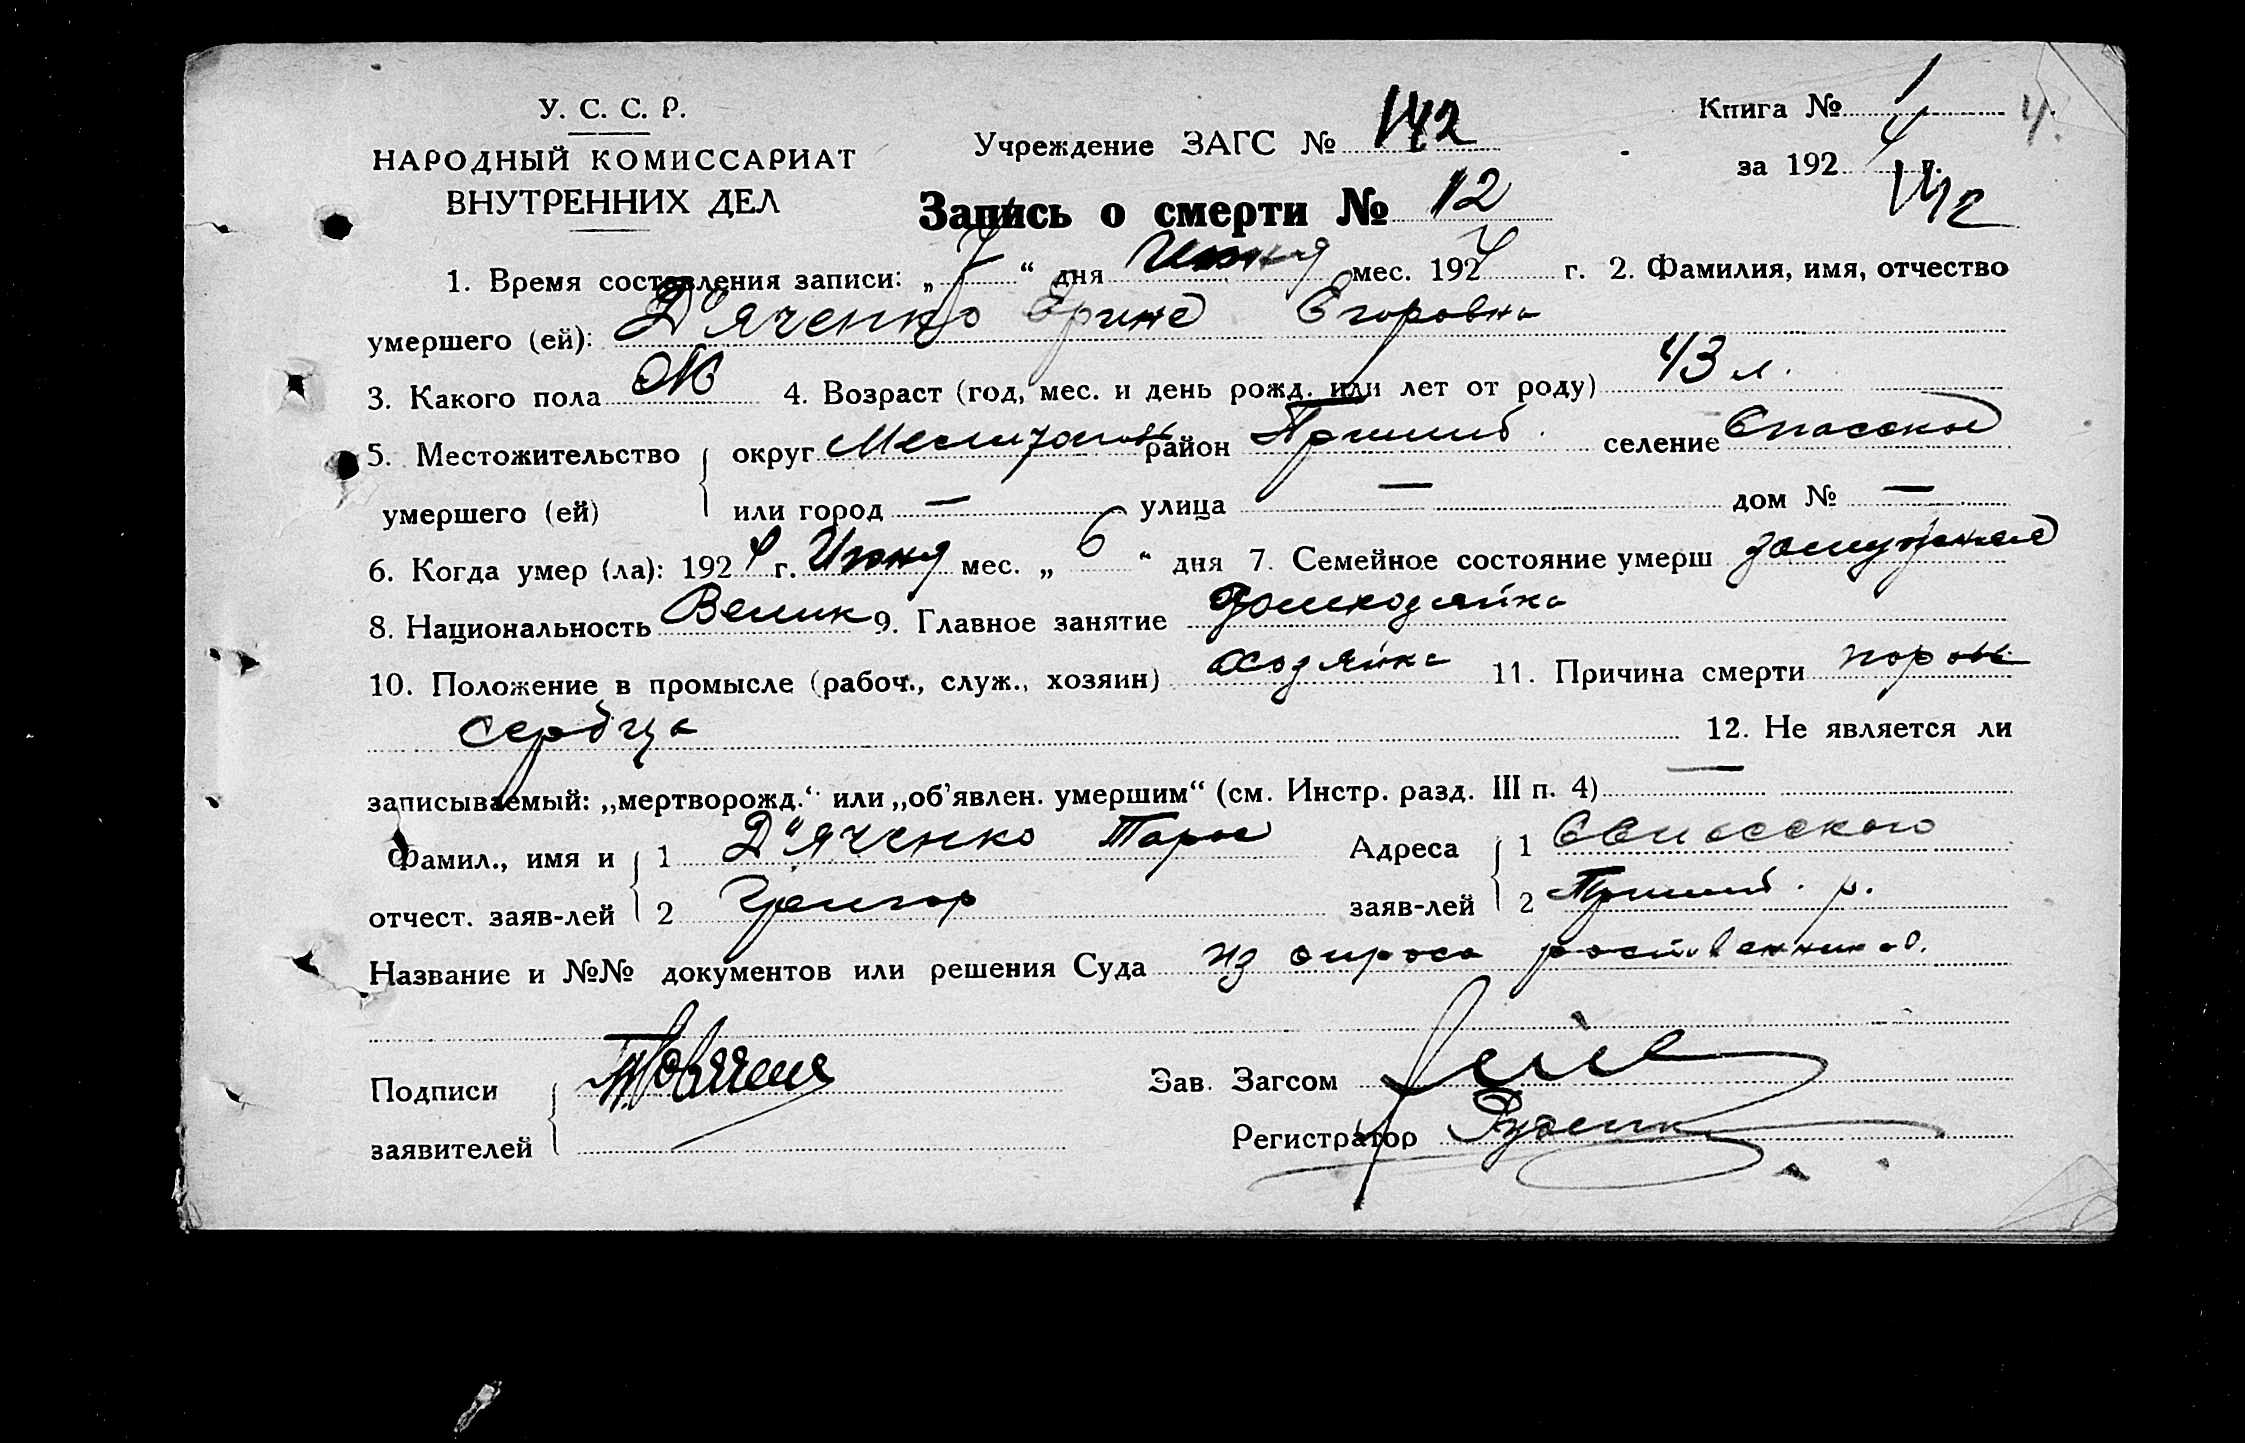 У. С. С. Р.
НАРОДНЫЙ КОМИССАРИАТ
ВНУТРЕННИХ ДЕЛ
Учреждение ЗАГС № 142
Запись о смерти № 12
Книга № 1 4.
за 192 4 г.
142
1. Время составления записи: „ 7 “ дня Июня мес. 192 4 г. 2. Фамилия, имя, отчество
умершего (ей): Д"яченко Ерина Егоровна
3. Какого пола Ж 4. Возраст (год, мес. и день рожд. или лет от роду) 43 л.
5. Местожительство округ Мелитопол район Пришиб. селение Спасское
умершего (ей) или город — улица — дом № —
6. Когда умер (ла): 192 4 г. Июня мес. „ 6 “ дня 7. Семейное состояние умерш замужняя
8. Национальность Велик 9. Главное занятие домхозяйка
10. Положение в промысле (рабоч., служ., хозяин) хозяйка 11. Причина смерти порок
сердца 12. Не является ли
записываемый: „мертворожд.“ или „об’явлен. умершим“ (см. Инстр. разд. III п. 4) —
Фамил., имя и 1 Д"яченко Тарас Адреса 1
отчест. заяв-лей 2 заяв-лей 2 Пришиб. р.
Название и №№ документов или решения Суда из опроса
Подписи Зав. Загсом
заявителей Регистратор